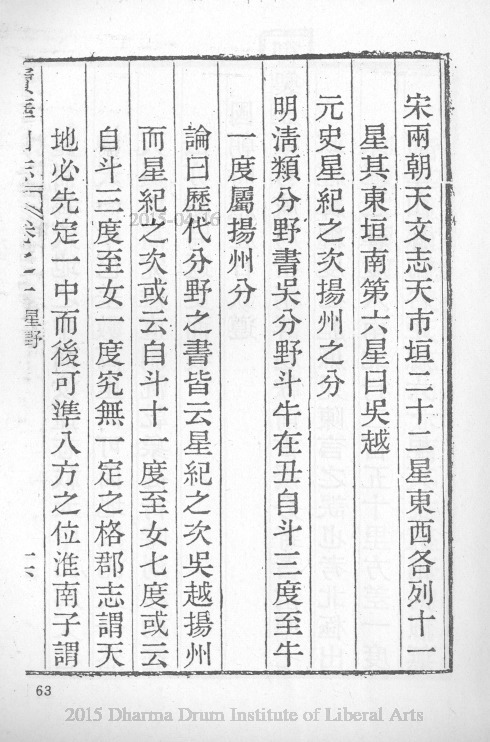 宋兩朝天文志天市垣二十二星東西各列十一
星其東垣南第六星曰吳越
元史星紀之次揚州之分
明清類分野書吳分野斗牛在丑自斗三度至牛
一度屬揚州分
論曰歷代分野之書皆云星紀之次吳越揚州
而星紀之次或云自斗十一度至女七度或云
自斗三度至女一度究無一定之格郡志謂天
地必先定一中而後可準八方之位淮南子謂
卷之一 星野
63
2015-04-16
2015 Dharma Drum Institute of Liberal Arts